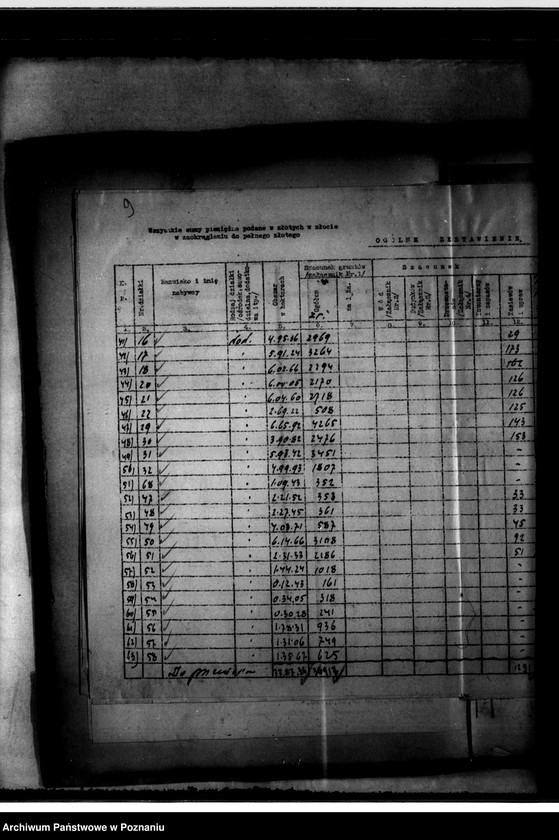 9
Wszystkie sumy pieniężne podane w złotych w złocie
w zaokrągleniu do pełnego złotego
OGÓLNE ZESTAWIENIE
L. P.
Nr. działki
Nazwisko i imię nabywcy
Rodzaj działki
Obszar w hektarach
Szacunek gruntów /załącznik Nr.1/
Ogółem
za 1 ha.
Szacunek
/załącznik Nr.2/
Budynków /załącznik Nr.3/
/załącznik Nr.4/
Inwentarza i zapasów
Zasiewów i upraw
1. 2. 3. 4. 5. 6. 7. 8. 9. 10. 11. 12.
41/ 16 dod. 4.95.26 2969 29
42/ 17 5.91.24 3264 173
43/ 18 6.02.66 2294
44/ 20 6.04.05 2170 126
45/ 21 6.04.60 2718 126
46/ 22 2.69.22 508 125
47/ 29 6.65.92 4265 143
48/ 30 3.90.82 2476 153
49/ 31 5.98.42 3451 -
50/ 32 4.99.93 1807 -
51/ 68 1.09.43 352 -
52/ 47 2.21.52 353 33
53/ 48 2.27.45 361 33
54/ 49 4.08.71 587 45
55/ 50 6.14.66 3108 92
56/ 51 2.31.33 2286 51
57/ 52 1.44.24 1018 -
58/ 53 0.12.43 161 -
59/ 54 0.34.05 318 -
60/ 55 0.30.28 241 -
61/ 56 1.78.31 936 -
62/ 57 1.31.06 749 -
63/ 58 1.35.67 625 -
Do
Archiwum Państwowe w Poznaniu